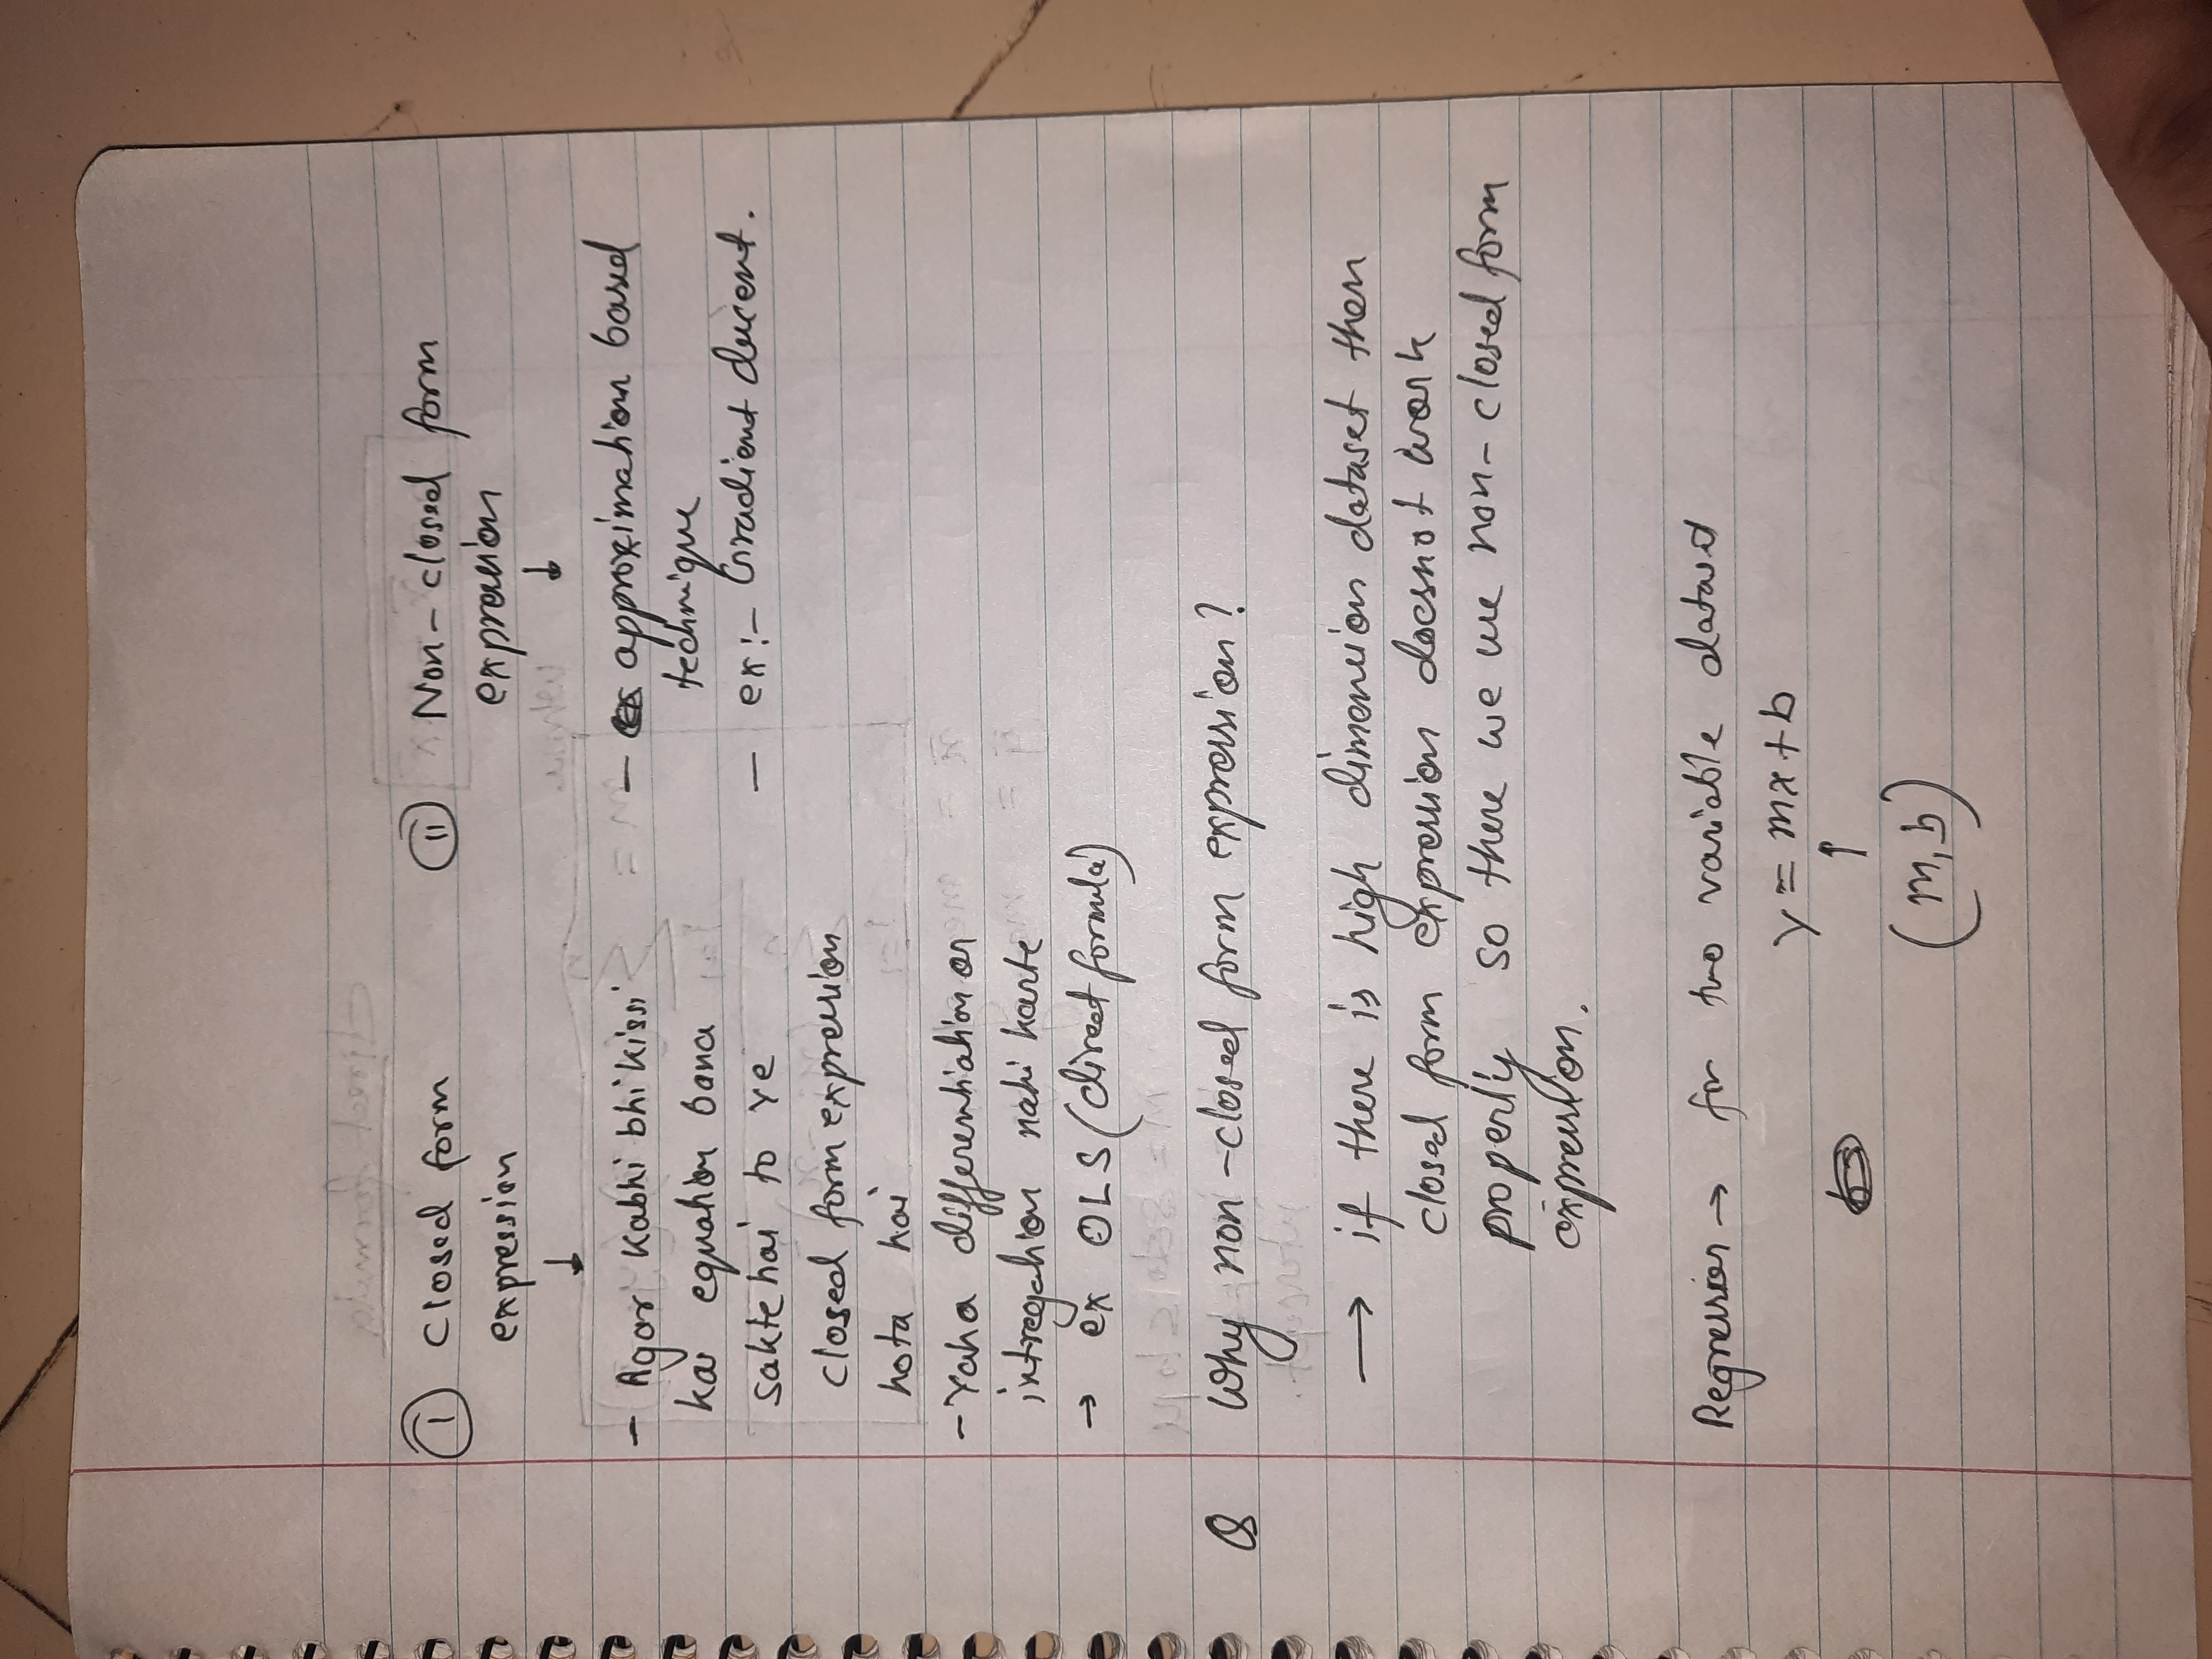 (i) Closed form
expression
↓
- Agar kabhi bhi kissi
kai equation bana
sakte hai to ye
closed form expression
hota hai
- Yaha differentiation or
intregation nahi karte
→ ex OLS (direct formula)
(ii) Non-closed form
expression
↓
- approximation based
technique
- ex:- Gradient decent.
Q Why non-closed form expression?
→ if there is high dimension dataset then
closed form expression doesnot work
properly so there we use non-closed form
expression.
Regression → for two variable dataset
y = mx+b
↑
(m, b)